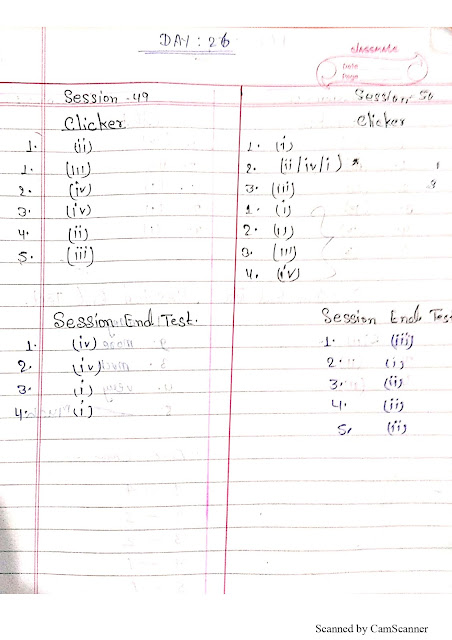 DAY : 26
classmate
Date
Page
Session - 49
Clicker
1. (ii)
1. (iii)
2. (iv)
3. (iv)
4. (ii)
5. (iii)
Session End Test.
1. (iv)
2. (iv)
3. (i)
4. (i)
Session - 50
Clicker
1. (i)
2. (ii/iv/i) *
3. (iii)
1. (i)
2. (ii)
3. (iii)
4. (iv)
Session End Test
1. (iii)
2. (i)
3. (ii)
4. (ii)
5. (ii)
Scanned by CamScanner